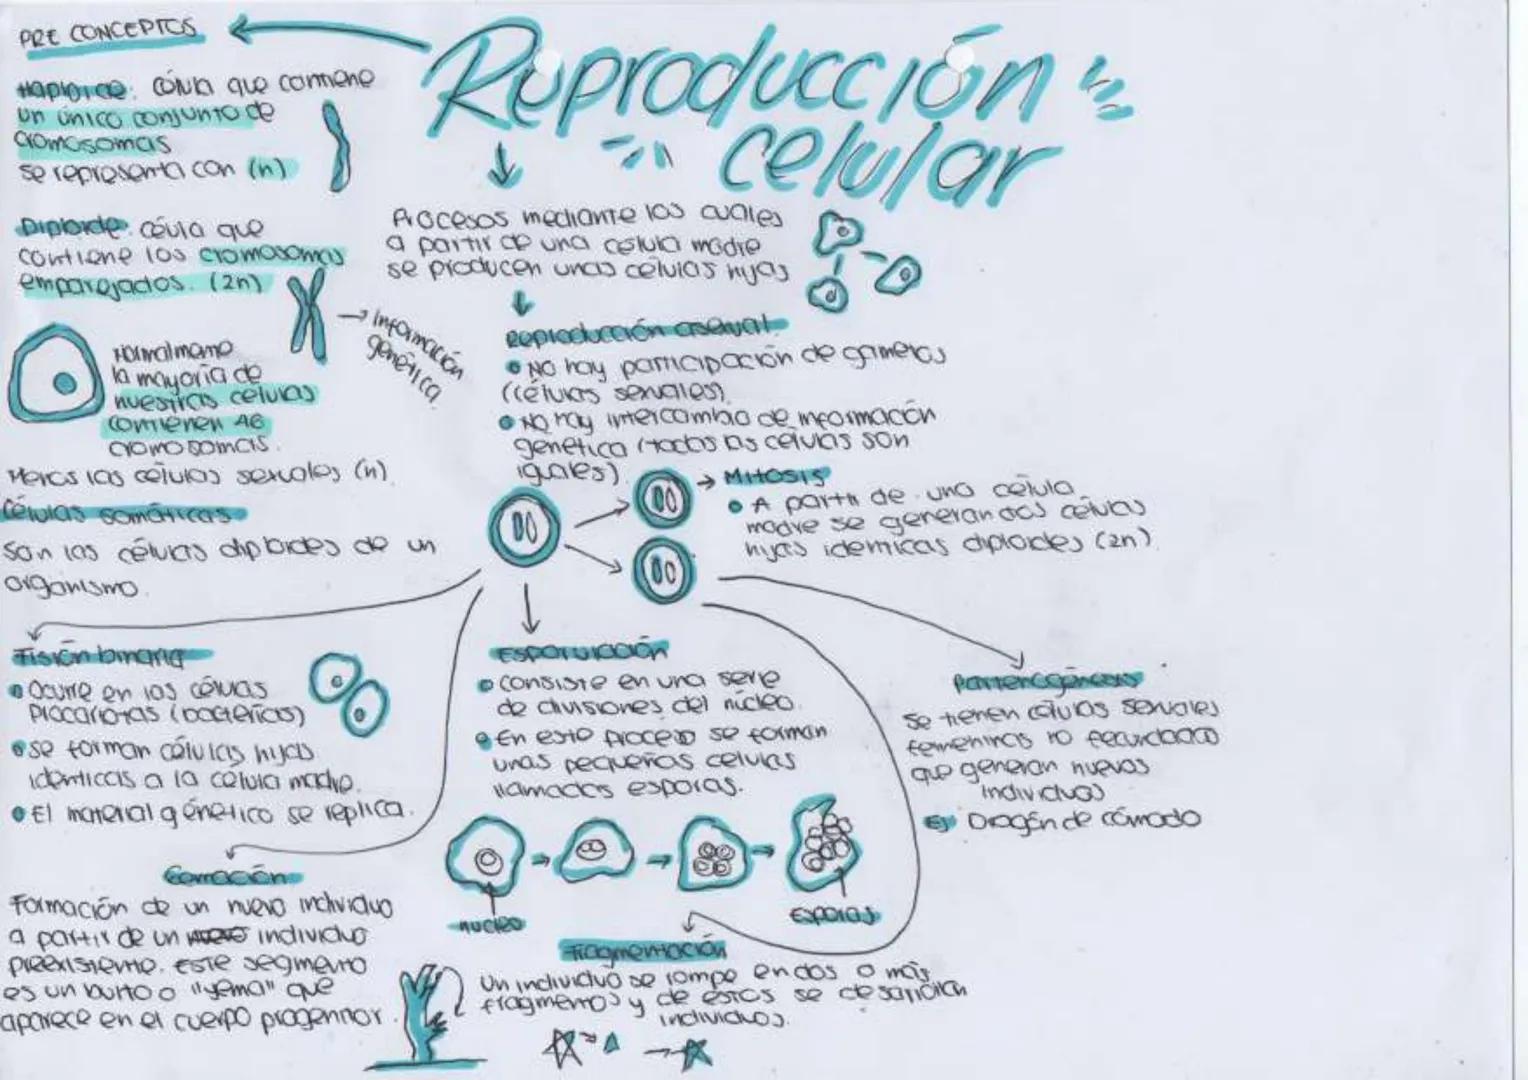 PRE CONCEPTOS
Reproducción
celular
Haploide: célula que contiene
un único conjunto de
cromosomas
se representa con (n)
Diploide: célula que
contiene los cromosomas
emparejados. (2n)
→ Información
genética
Normalmente
la mayoría de
nuestras células
contienen 46
cromosomas.
Menos las células sexuales (n).
Células somáticas
Son las células diploides de un
organismo.
Procesos mediante los cuales
a partir de una celula madre
se producen unas células hijas
Reproducción asexual
• No hay participación de gametos
(células sexuales)
• No hay intercambio de información
genética (todas las células son
iguales)
→ Mitosis
• A partir de una célula
madre se generan dos células
hijas identicas diploides (2n).
Fisión binaria
• Ocurre en las células
procariotas (bacterias)
• Se forman células hijas
identicas a la célula madre.
• El material génetico se replica.
Esporulación
• Consiste en una serie
de divisiones del núcleo.
• En este proceso se forman
unas pequeñas celulas
llamadas esporas.
nucleo
Esporas
Partenogénesis
Se tienen células sexuales
femeninas no fecundadas
que generan nuevos
individuos
Ej Dragón de cómodo
Gemación
Formación de un nuevo individuo
a partir de un individuo
preexistente. Este segmento
es un bulto o "yema" que
aparece en el cuerpo progenitor.
Fragmentación
Un individuo se rompe en dos o más
fragmentos y de estos se desarrollan
individuos.